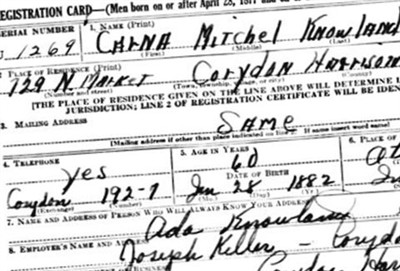 REGISTRATION CARD—(Men born on or after April 28, 1877
SERIAL NUMBER
1. NAME (Print)
1269
Mitchel Knowland
(First) (Middle) (Last)
2. PLACE OF RESIDENCE (Print)
129 N Market Corydon Harrison
(Number and street) (Town, township, village, or city) (County)
[THE PLACE OF RESIDENCE GIVEN ON THE LINE ABOVE WILL DETERMINE L
JURISDICTION; LINE 2 OF REGISTRATION CERTIFICATE WILL BE IDEN
3. MAILING ADDRESS
SAME
[Mailing address if other than place indicated on line 2. If same insert word same]
4. TELEPHONE
5. AGE IN YEARS
6. PLACE OF
yes
60
DATE OF BIRTH
Corydon 192-
Jan 28 1882
(Exchange) (Number)
(Mo.) (Day) (Yr.)
7. NAME AND ADDRESS OF PERSON WHO WILL ALWAYS KNOW YOUR ADDRESS
Ada Knowland
8. EMPLOYER'S NAME AND ADDRESS
Joseph Keller - Corydo
OF EMPLOYMENT OR BUSINESS
Corydon Har